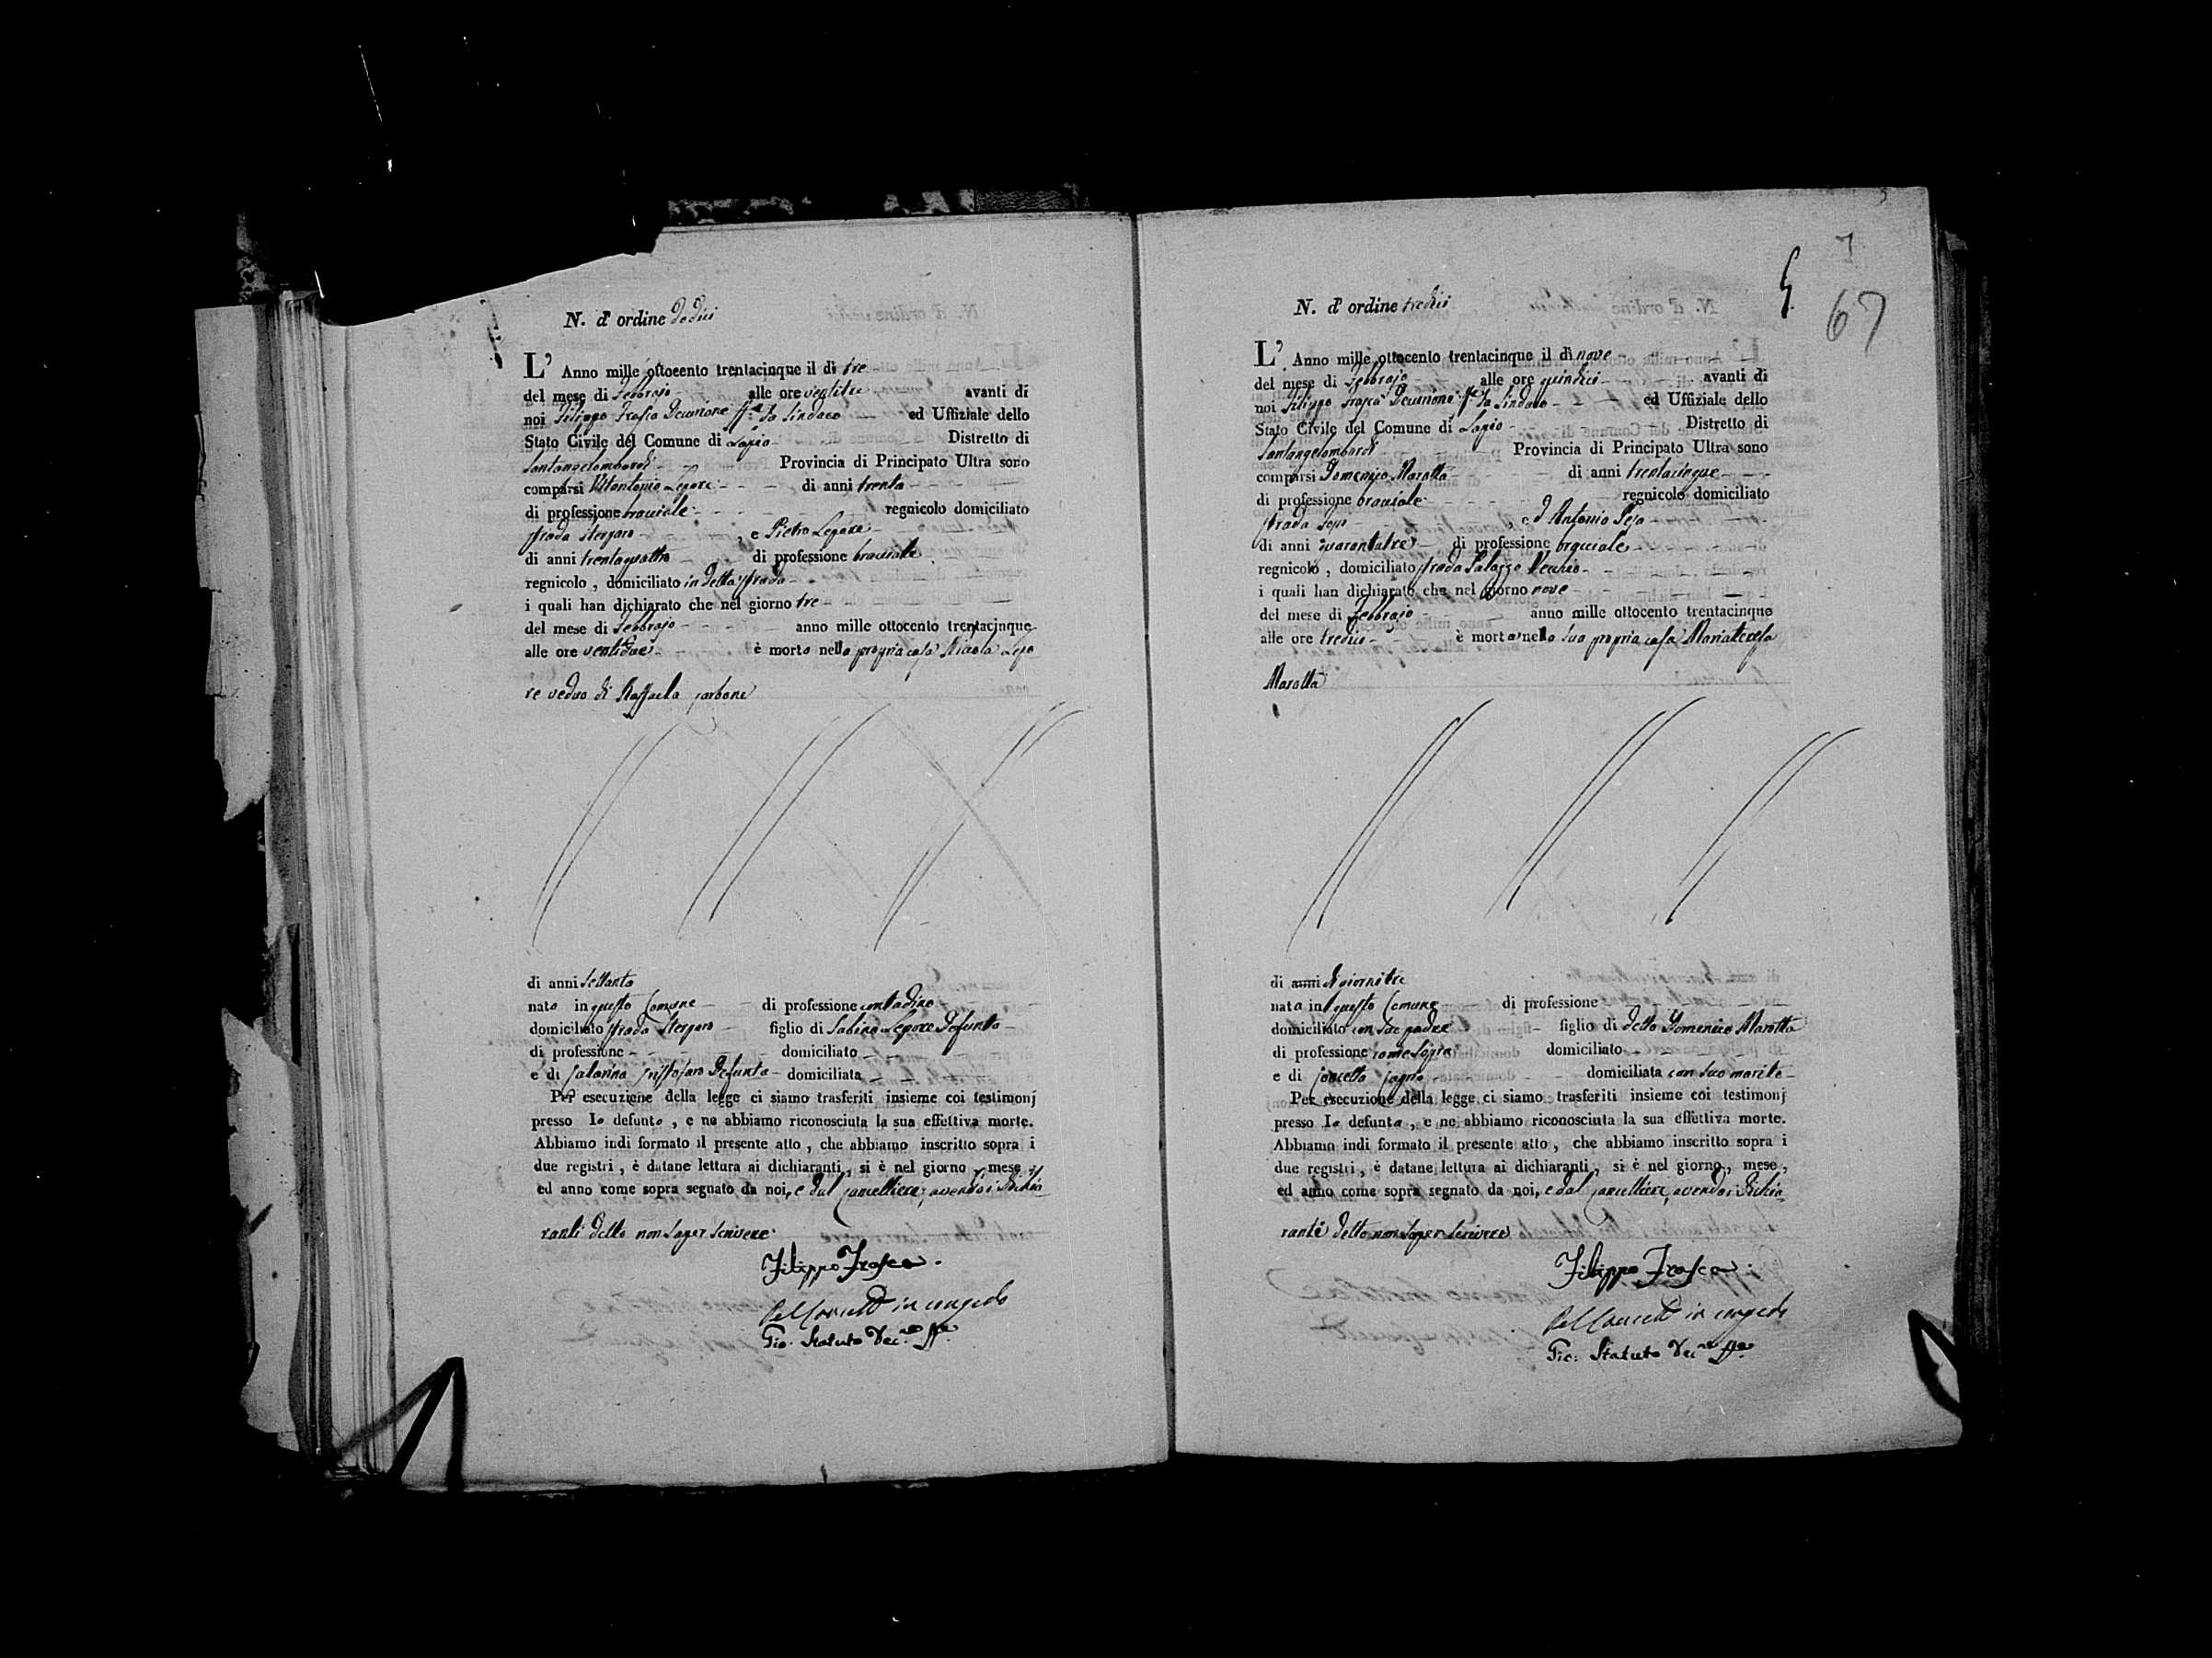 N. d' ordine Dodici
L' Anno mille ottocento trentacinque il di tre
del mese di Febbrajo alle ore ventitre avanti di
noi Filippo Frasca Decurione ff.ne da Sindaco ed Uffiziale dello
Stato Civile del Comune di Lapio Distretto di
Santangelombardi Provincia di Principato Ultra sono
comparsi Vitantonio Lepore di anni trenta
di professione bracciale regnicolo domiciliato
strada , e Pietro Lepore
di anni trentaquattro di professione bracciale
regnicolo , domiciliato in detta strada
i quali han dichiarato che nel giorno tre
del mese di Febbrajo anno mille ottocento trentacinque
alle ore ventidue è morto nella propria casa Nicola Lepo
re veduo di Raffaela Carbone
di anni settanta
nato in questo Comune di professione contadino
domiciliato strada figlio di Sabino Lepore Defunto
di professione domiciliato
e di Catarina Defunta domiciliata
Per esecuzione della legge ci siamo trasferiti insieme coi testimonj
presso lo defunto , e ne abbiamo riconosciuta la sua effettiva morte.
Abbiamo indi formato il presente atto , che abbiamo inscritto sopra i
due registri , è datane lettura ai dichiaranti , si è nel giorno , mese ,
ed anno come sopra segnato da noi, e dal Cancelliere, avendo i dichia
ranti detto non saper scrivere
Filippo Frasca
Pel Cancell. in congedo
Gio. Statuto Dec.ne ff.ne
5
7
67
N. d' ordine tredici
L' Anno mille ottocento trentacinque il di nove
del mese di Febbrajo alle ore quindici avanti di
noi Filippo Frasca Decurione ff.ne da Sindaco ed Uffiziale dello
Stato Civile del Comune di Lapio Distretto di
Santangelombardi Provincia di Principato Ultra sono
comparsi Domenico Marotta di anni trentacinque
di professione bracciale regnicolo domiciliato
strada , ed Antonio
di anni quarantatre di professione bracciale
regnicolo , domiciliato strada Palazzo Vecchio
i quali han dichiarato che nel giorno nove
del mese di Febbrajo anno mille ottocento trentacinque
alle ore tredici è morta nella sua propria casa Mariateresa
Marotta
di anni di giorni tre
nata in questo Comune di professione
domiciliato con suo padre figlio di detto Domenico Marotta
di professione come sopra domiciliato
e di Concetta domiciliata con suo marito
Per esecuzione della legge ci siamo trasferiti insieme coi testimonj
presso la defunta , e ne abbiamo riconosciuta la sua effettiva morte.
Abbiamo indi formato il presente atto , che abbiamo inscritto sopra i
due registri , è datane lettura ai dichiaranti , si è nel giorno , mese ,
ed anno come sopra segnato da noi, e dal Cancelliere, avendo i dichia
ranti detto non saper scrivere
Filippo Frasca
Pel Cancell. in congedo
Gio. Statuto Dec.ne ff.ne